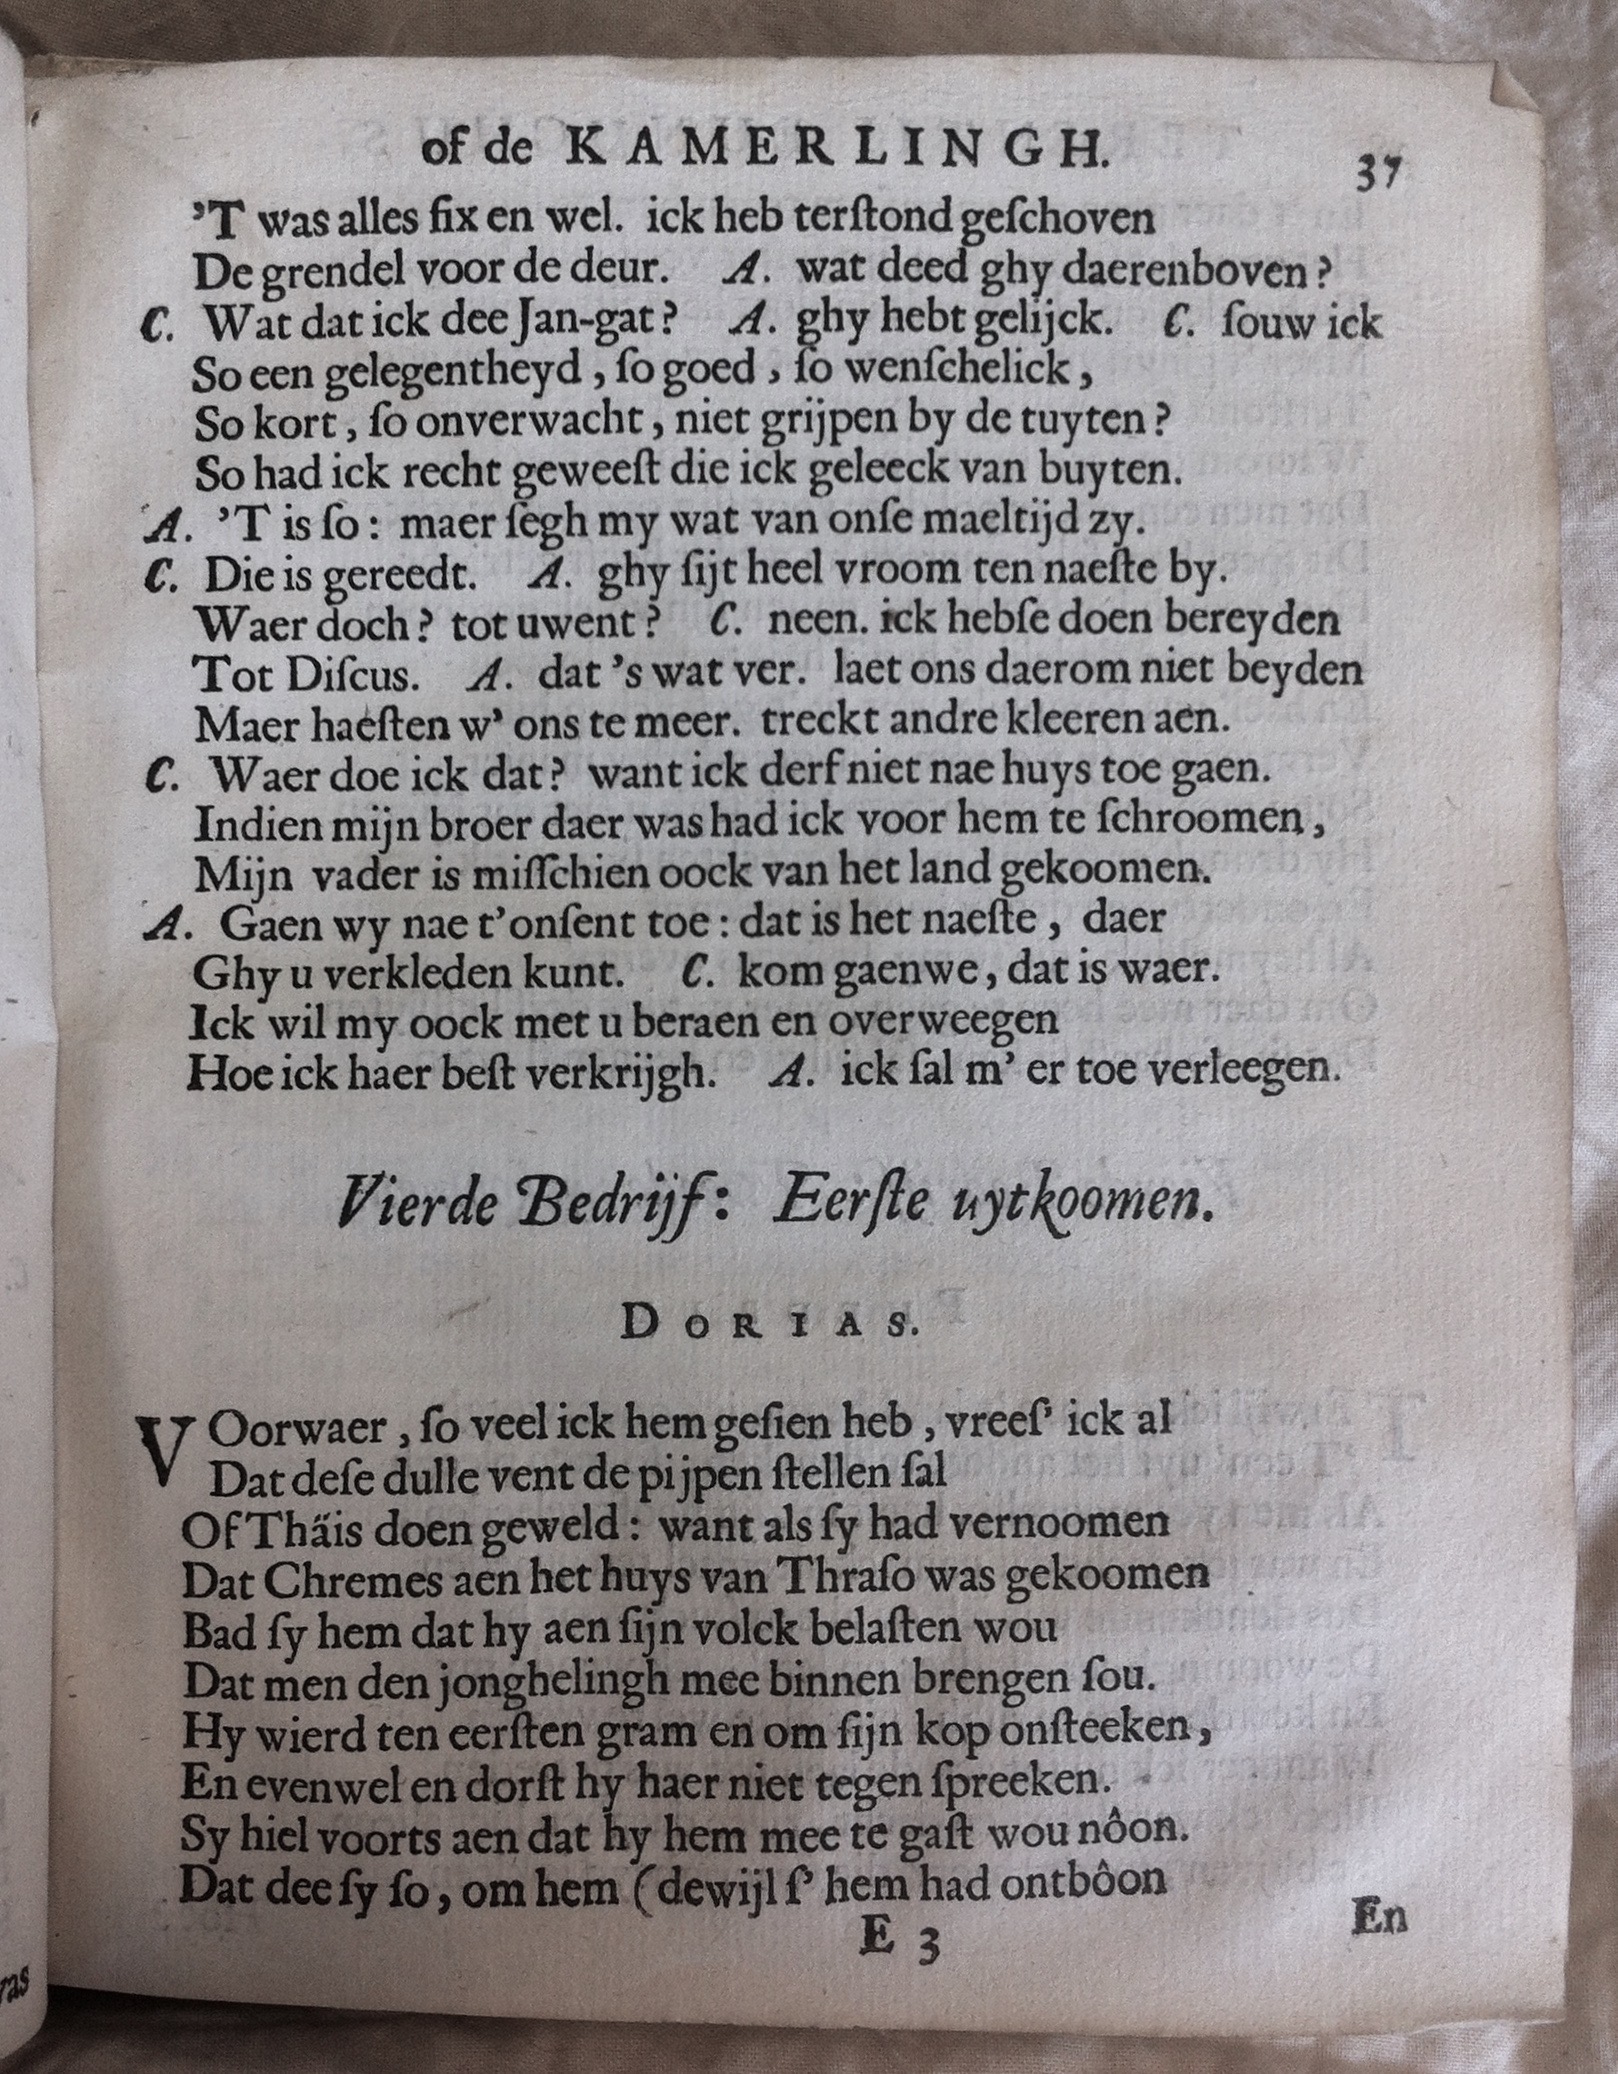 of de KAMERLINGH. 37
’T was alles fix en wel. ick heb terſtond geſchoven
De grendel voor de deur. A. wat deed ghy daerenboven?
C. Wat dat ick dee Jan-gat? A. ghy hebt gelijck. C. ſouw ick
So een gelegentheyd, ſo goed, ſo wenſchelick,
So kort, ſo onverwacht, niet grijpen by de tuyten?
So had ick recht geweeſt die ick geleeck van buyten.
A. ’T is ſo: maer ſegh my wat van onſe maeltijd zy.
C. Die is gereedt. A. ghy ſijt heel vroom ten naeſte by.
Waer doch? tot uwent? C. neen. ick hebſe doen bereyden
Tot Diſcus. A. dat ’s wat ver. laet ons daerom niet beyden
Maer haeſten w’ ons te meer. treckt andre kleeren aen.
C. Waer doe ick dat? want ick derf niet nae huys toe gaen.
Indien mijn broer daer was had ick voor hem te ſchroomen,
Mijn vader is miſſchien oock van het land gekoomen.
A. Gaen wy nae t’onſent toe: dat is het naeſte, daer
Ghy u verkleden kunt. C. kom gaenwe, dat is waer.
Ick wil my oock met u beraen en overweegen
Hoe ick haer beſt verkrijgh. A. ick ſal m’ er toe verleegen.
Vierde Bedrijf: Eerſte uytkoomen.
DORIAS.
VOorwaer, ſo veel ick hem geſien heb, vreeſ’ ick al
Dat deſe dulle vent de pijpen ſtellen ſal
Of Thäis doen geweld: want als ſy had vernoomen
Dat Chremes aen het huys van Thraſo was gekoomen
Bad ſy hem dat hy aen ſijn volck belaſten wou
Dat men den jonghelingh mee binnen brengen ſou.
Hy wierd ten eerſten gram en om ſijn kop onſteeken,
En evenwel en dorſt hy haer niet tegen ſpreeken.
Sy hiel voorts aen dat hy hem mee te gaſt wou nôon.
Dat dee ſy ſo, om hem (dewijl ſ’ hem had ontbôon
E 3 En